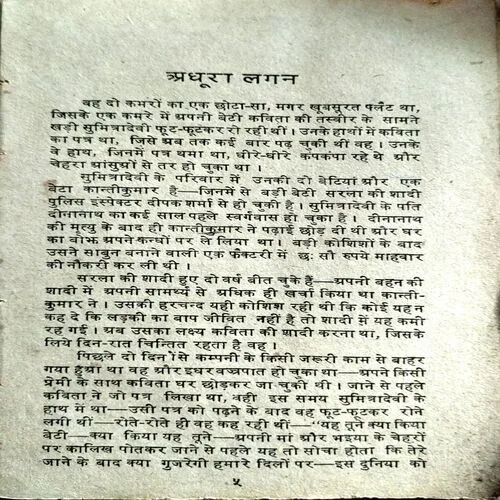 अधूरा लगन
वह दो कमरों का एक छोटा-सा, मगर खूबसूरत फ्लैट था,
जिसके एक कमरे में अपनी बेटी कविता की तस्वीर के सामने
खड़ी सुमित्रादेवी फूट-फूटकर रो रही थीं। उनके हाथों में कविता
का पत्र था, जिसे अब तक कई बार पढ़ चुकी थी वह। उनके
वे हाथ, जिनमें पत्र थमा था, धीरे-धीरे कंपकंपा रहे थे और
चेहरा आंसुओं से तर हो चुका था।
सुमित्रादेवी के परिवार में उनकी दो बेटियां और एक
बेटा कान्तीकुमार है—जिनमें से बड़ी बेटी सरला की शादी
पुलिस इंस्पेक्टर दीपक शर्मा से हो चुकी है। सुमित्रादेवी के पति
दीनानाथ का कई साल पहले स्वर्गवास हो चुका है। दीनानाथ
की मृत्यु के बाद ही कान्तीकुमार ने पढ़ाई छोड़ दी थी और घर
का बोझ अपने कन्धों पर ले लिया था। बड़ी कोशिशों के बाद
उसने साबुन बनाने वाली एक फैक्टरी में छः सौ रुपये माहवार
की नौकरी कर ली थी।
सरला की शादी हुए दो वर्ष बीत चुके हैं—अपनी बहन की
शादी में अपनी सामर्थ्य से अधिक ही खर्चा किया था कान्ती-
कुमार ने। उसकी हरचन्द यही कोशिश रही थी कि कोई यह न
कह दे कि लड़की का बाप जीवित नहीं है तो शादी में यह कमी
रह गई। अब उसका लक्ष्य कविता की शादी करना था, जिसके
लिये दिन-रात चिन्तित रहता है वह।
पिछले दो दिनों से कम्पनी के किसी जरूरी काम से बाहर
गया हुआ था वह और इधर वज्रपात हो चुका था—अपने किसी
प्रेमी के साथ कविता घर छोड़कर जा चुकी थी। जाने से पहले
कविता ने जो पत्र लिखा था, वही इस समय सुमित्रादेवी के
हाथ में था—उसी पत्र को पढ़ने के बाद वह फूट-फूटकर रोने
लगी थीं—रोते-रोते ही वह कह रही थीं—"यह तूने क्या किया
बेटी—क्या किया यह तूने—अपनी मां और भइया के चेहरों
पर कालिख पोतकर जाने से पहले यह तो सोचा होता कि तेरे
जाने के बाद क्या गुजरेगी हमारे दिलों पर—इस दुनिया को
५